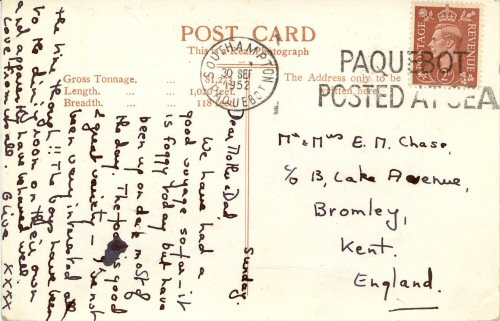 POST CARD
This is a Real Photograph
Gross Tonnage,
Length.
Breadth.
1,020 feet.
118
The Address only to be
written here.
SOUTHAMPTON
30 SEP
1952
PAQUEBOT
PAQUEBOT
POSTED AT SEA
POSTAGE REVENUE
2D
Sunday.
Dear Mother & Dad,
We have had a
good voyage so far – it
is foggy today but have
been up on deck most of
the day. The food is good
& great variety –
the time though!! The boys have been
been very interested all
to the dining room on their own
and apparently have behaved well.
Love from us all. Olive xxxx
Mr & Mrs E. M. Chase.
c/o 13, Lake Avenue,
Bromley,
Kent.
England.